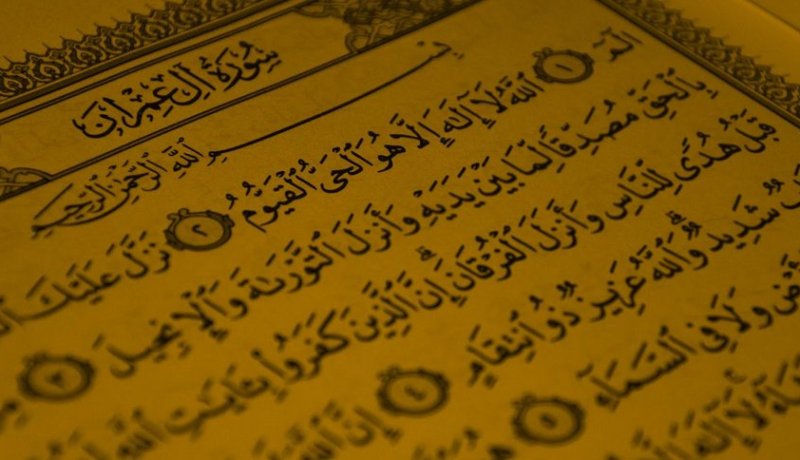 سُورَةُ آلِ عِمْرَانَ
بِسْمِ ٱللَّهِ ٱلرَّحْمَٰنِ ٱلرَّحِيمِ
الٓمٓ ١ ٱللَّهُ لَآ إِلَٰهَ إِلَّا هُوَ ٱلْحَىُّ ٱلْقَيُّومُ ٢ نَزَّلَ عَلَيْكَ
بِٱلْحَقِّ مُصَدِّقًا لِّمَا بَيْنَ يَدَيْهِ وَأَنزَلَ ٱلتَّوْرَىٰةَ وَٱلْإِنجِيلَ ٣
قَبْلُ هُدًى لِّلنَّاسِ وَأَنزَلَ ٱلْفُرْقَانَ ۗ إِنَّ ٱلَّذِينَ كَفَرُوا۟ بِـَٔايَٰتِ ٱللَّهِ
شَدِيدٌ ۗ وَٱللَّهُ عَزِيزٌ ذُو ٱنتِقَامٍ ٤ إِنَّ ٱللَّهَ
وَلَا فِى ٱلسَّمَآءِ ٥
لَآ إِلَٰهَ إِلَّا